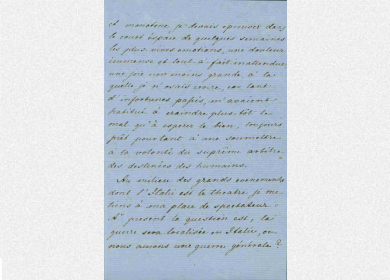 et monotone je devais éprouver dans
le court espace de quelques semaines
les plus vives émotions, une douleur
immense et tout-à-fait inattendue
une joie non moins grande à la
quelle je n'osais croire, car tant
d'infortunes passées, m'avaient
habitué à craindre plus-tôt le
mal qu'à espérer le bien, toujours
prêt pourtant à me soumettre
à la volonté du suprême arbitre
des destinées des humains.
Au milieu des grands événements
dont l'Italie est le théâtre je me
tiens à ma place de spectateur.
A present la question est, la
guerre sera localisée en Italie, ou
nous aurons une guerre générale?